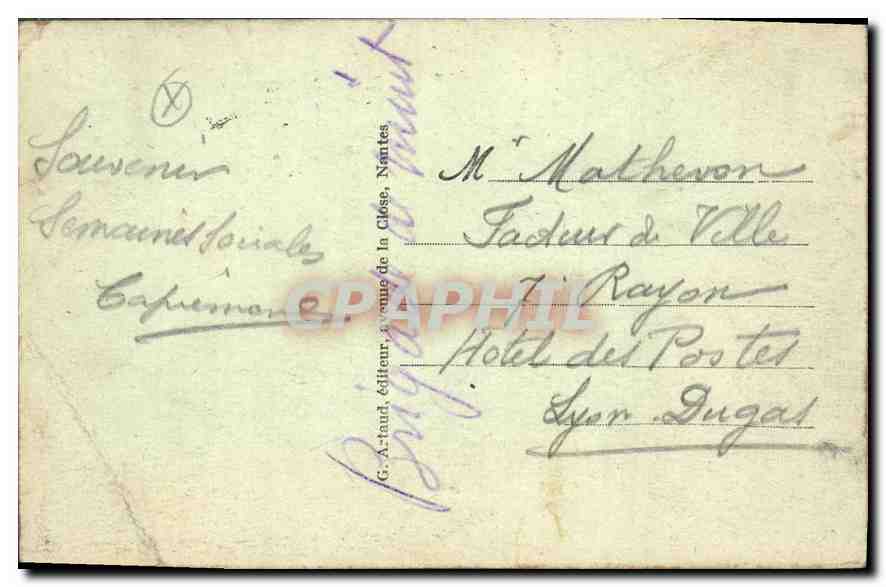 Souvenir
Semaines Sociales
G. Artaud, éditeur, avenue de la Close, Nantes
Brigade de nuit
Mr Mathevon
Facteur de Ville
7e Rayon
Hotel des Postes
Lyon Dugas
CPAPHIL